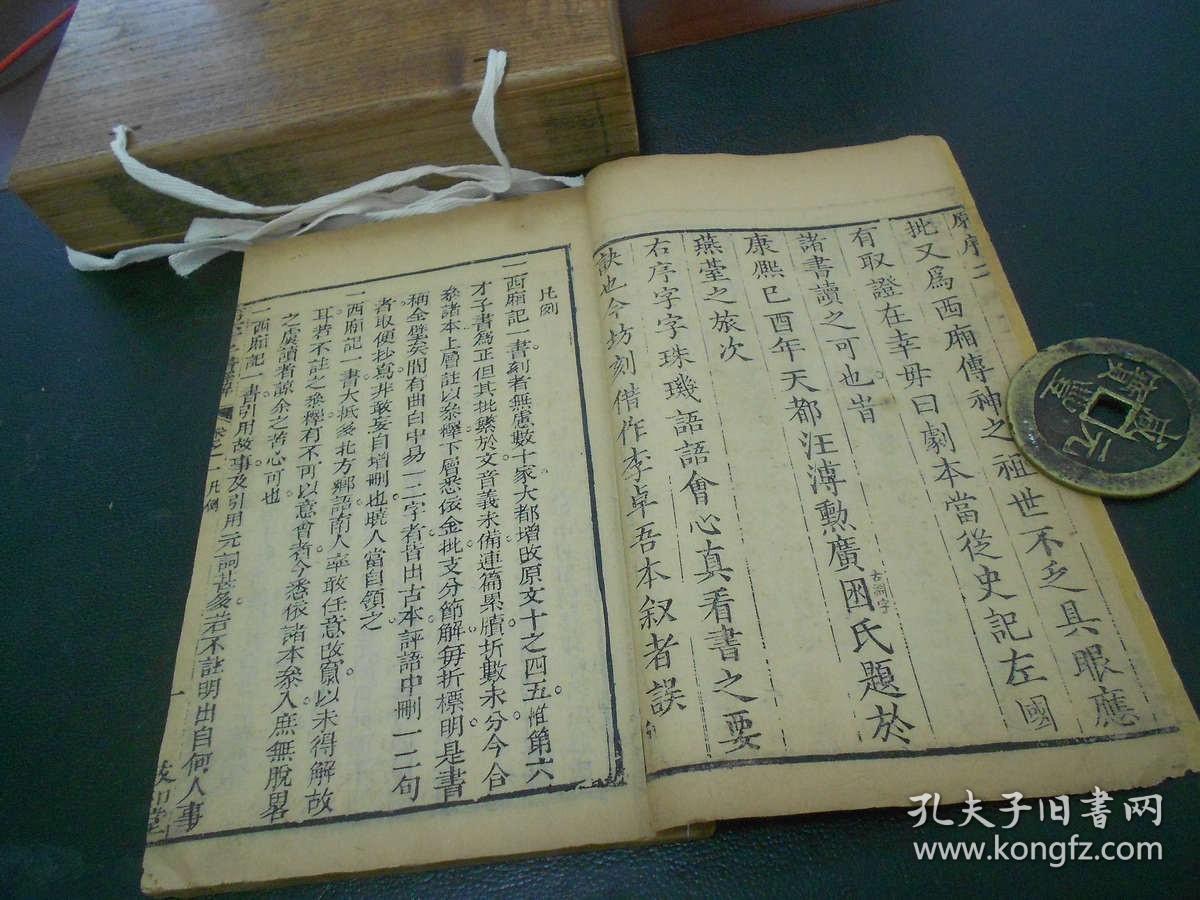 原序二
批又爲西廂傳神之祖世不乏具眼應
有取證在幸毋曰劇本當從史記左國
諸書讀之可也旹
康熙己酉年天都汪溥勲廣困氏題於
古淵字
燕臺之旅次
右序字字珠璣語語會心真看書之要
訣也今坊刻借作李卓吾本叙者誤
凡例
一西廂記一書刻者無慮數十家大都增改原文十之四五惟第六
才子書爲正但其批槩於文音義未備連篇累牘圻數未分今合
叅諸本上層註以叅釋下層悉依金批支分節解每折標明是書
稱全璧矣間有曲白中易一二字者皆出古本評語中刪一二句
者取便抄寫非敢妄自增刪也曉人當自領之
一西廂記一書大抵多北方鄉語南人率敢任意改竄以未得解故
耳若不註之叅釋有不可以意會者今悉依諸本叅入庶無脫畧
之虞讀者諒余之苦心可也
一西廂記一書引用故事及引用元詞甚多若不註明出自何人事
凡例
一
元寶
孔夫子旧书网
www.kongfz.com